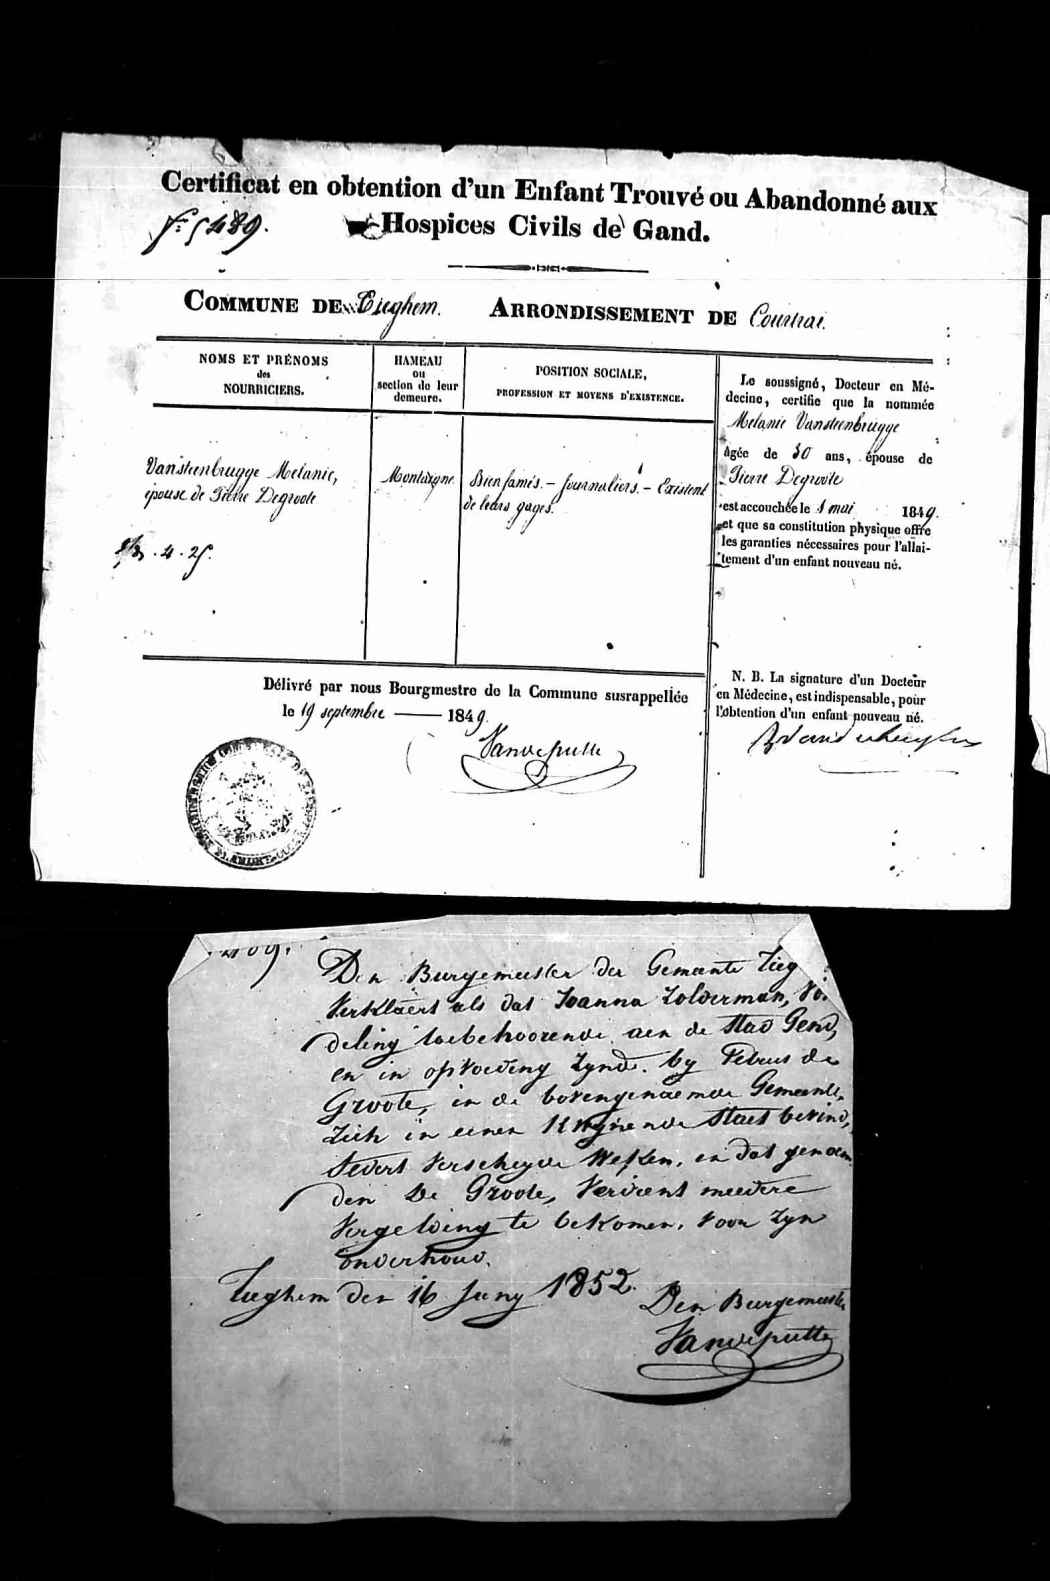 Certificat en obtention d'un Enfant Trouvé ou Abandonné aux
Hospices Civils de Gand.
F: 5489.
COMMUNE DE Tieghem. ARRONDISSEMENT DE Courtrai.
NOMS ET PRÉNOMS
des
NOURRICIERS.
HAMEAU
ou
section de leur
demeure.
POSITION SOCIALE,
PROFESSION ET MOYENS D'EXISTENCE.
Vansteenbrugge Melanie,
épouse de Pierre Degroote
Montaigne
Bien famés. - Journaliers. - Existent
de leurs gages.
4. 25.
Le soussigné, Docteur en Mé-
decine, certifie que la nommée
Melanie Vansteenbrugge
âgée de 30 ans, épouse de
Pierre Degroote
est accouchée le 1 mai 1849.
et que sa constitution physique offre
les garanties nécessaires pour l'allai-
tement d'un enfant nouveau né.
Délivré par nous Bourgmestre de la Commune susrappellée
le 19 septembre 1849.
Vandeputte
N. B. La signature d'un Docteur
en Médecine, est indispensable, pour
l'obtention d'un enfant nouveau né.
Den Burgemeester der Gemeente Tieg
Verklaert als dat Joanna Zolderman, Vo
deling toebehoorende aen de Stad Gend,
en in opvoeding zynde by Petrus de
Groote, in de bovengenaemde Gemeente,
Zich in eenen Kwynende Staet bevind,
sedert verscheyde Weken, en dat genoem
den De Groote, Verdient meerdere
Vergelding te bekomen, voor zyn
onderhoud.
Tieghem den 16 Juny 1852.
Den Burgemeester
Vandeputte